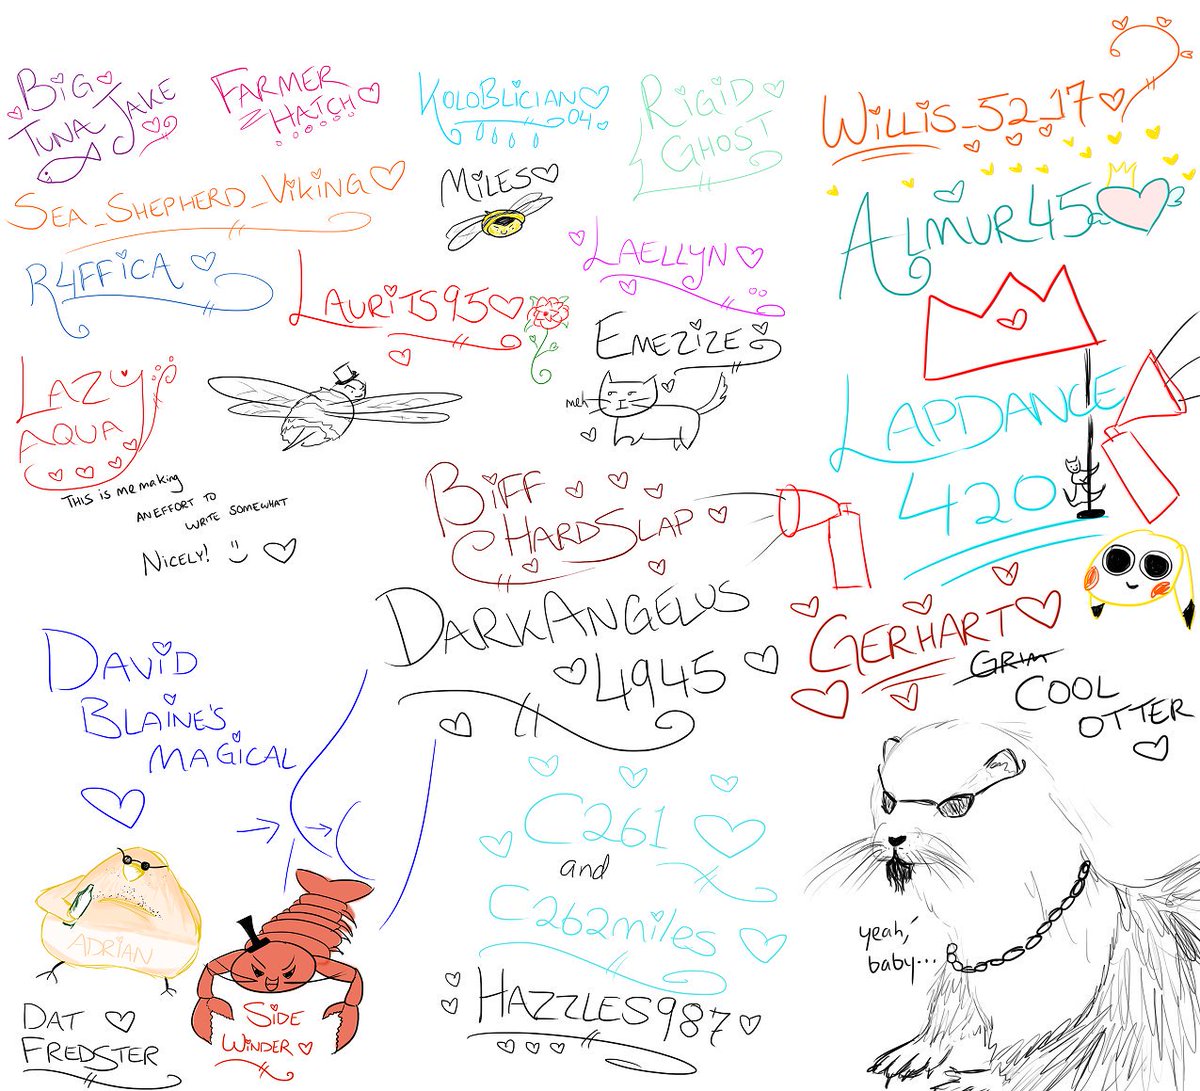 BIG
TUNA JAKE
FARMER
HATCH
KOLOBLICIAN
04
RIGID
GHOST
WILLIS_52_17
SEA_SHEPHERD_VIKING
MILES
ALMUR45a
R4FFICA
LAURITS95
LAELLYN
EMEZIZE
meh
LAZY
AQUA
THIS IS me making
AN EFFORT TO
WRITE SOMEWHAT
NICELY! :)
LAPDANCE
420
BIFF
HARDSLAP
DARKANGELUS
4945
GERHART
GRIM
COOL
OTTER
DAVID
BLAINE'S
MAGICAL
C261
and
C262miles
HAZZLES987
yeah,
baby...
ADRIAN
DAT
FREDSTER
SIDE
WINDER